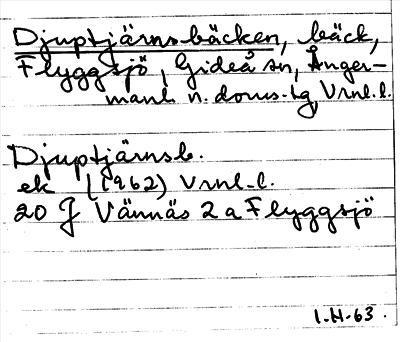 Djuptjärnsbäcken, bäck,
Flyggsjö, Gideå sn, Ånger-
manl. n. doms. tg, Vrnl. l.
Djuptjärnsb.
ek (1962) Vrnl-l.
20 J Vännäs 2 a Flyggsjö
1.H-63.